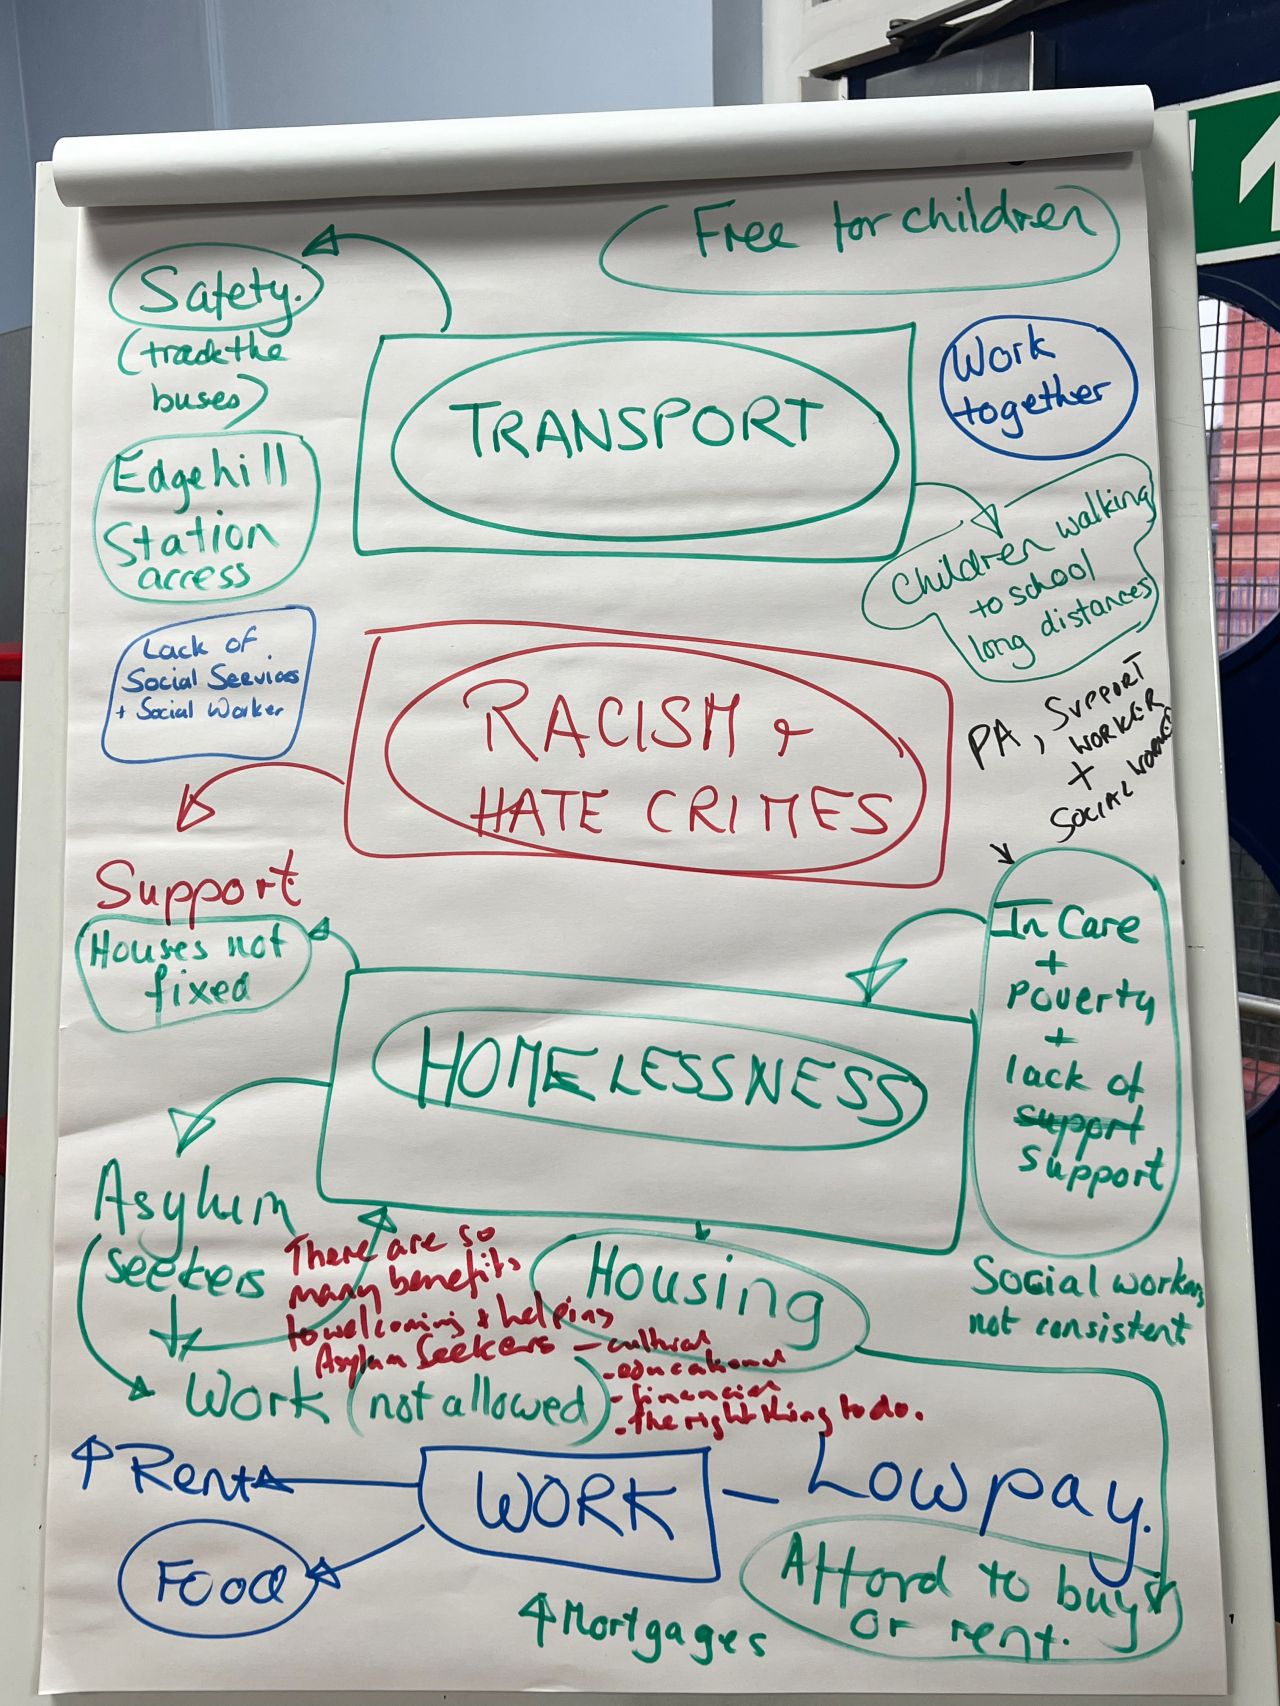 Free for children
Safety.
(track the
buses)
TRANSPORT
Work
together
Edgehill
Station
access
Children walking
to school
long distances
Lack of
Social Services
+ Social Worker
RACISM +
HATE CRIMES
PA, SUPPORT
WORKER
+
SOCIAL WORKER
Support
Houses not
fixed
In Care
+
Poverty
+
lack of
support
support
HOMELESSNESS
Asylum
seekers
There are so
many benefits
to welcoming & helping
Asylum Seekers - cultural
- educational
- financial
- the right thing to do.
Housing
Social workers
not consistent
Work (not allowed)
↑ Rent
WORK - Low pay.
Food
Afford to buy
or rent.
↑ Mortgages